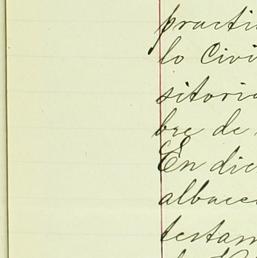 practi
lo Civi
sitoria
bre de
En dic
albace
testam